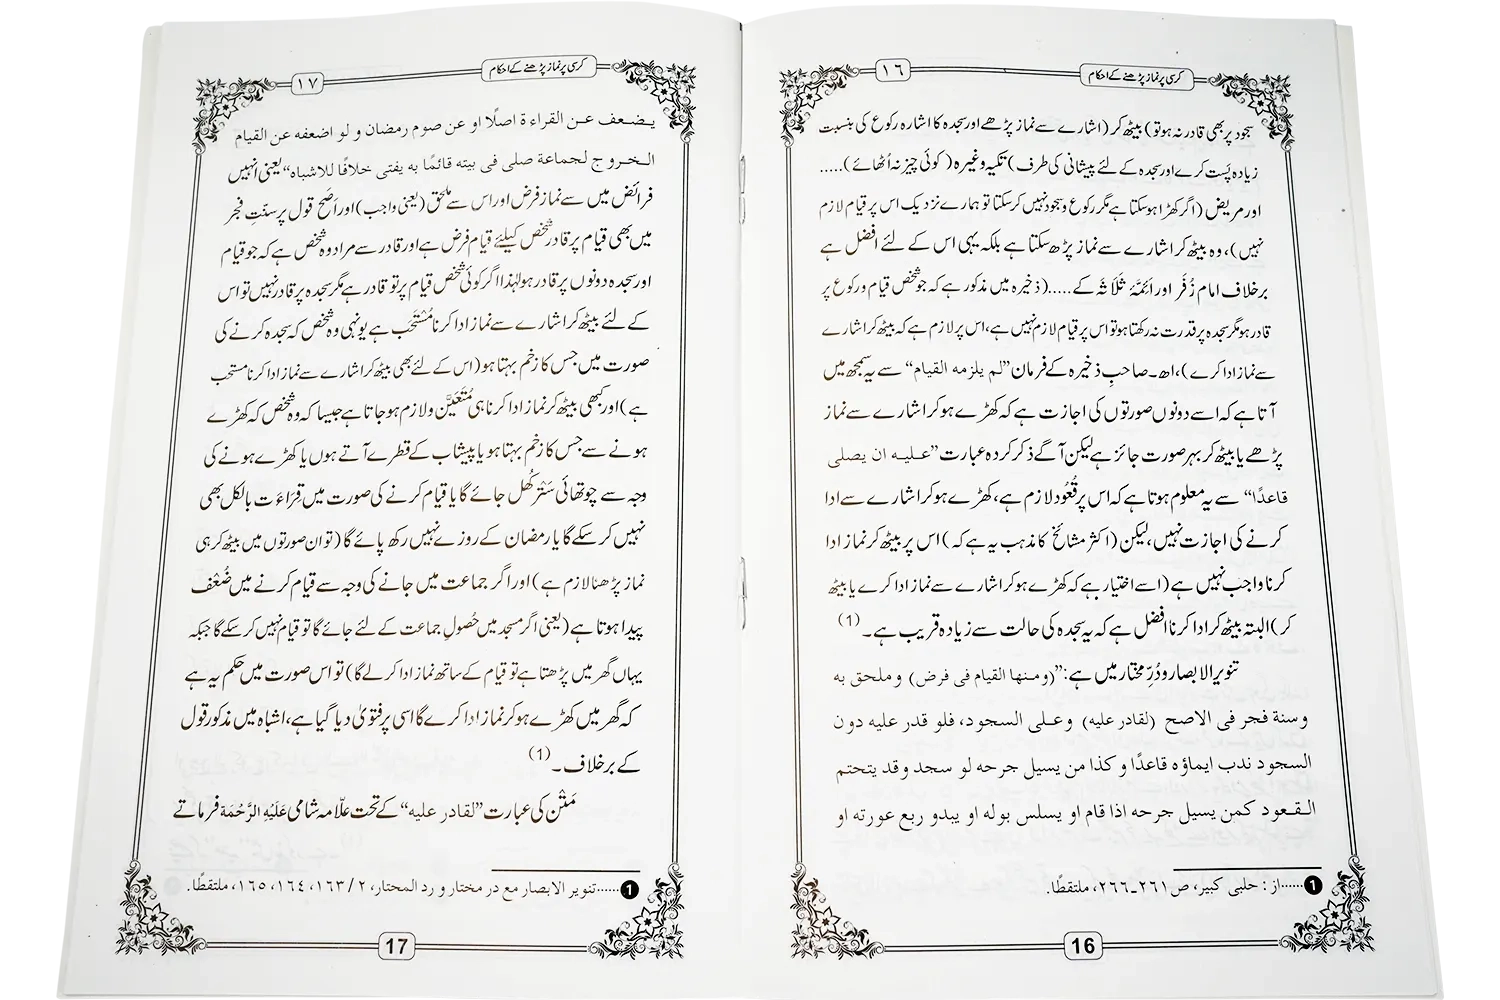 کرسی پر نماز پڑھنے کے احکام
١٦
سجود پر بھی قادر نہ ہو تو) بیٹھ کر (اشارے سے نماز پڑھے اور سجدہ کا اشارہ رکوع کی بنسبت
زیادہ پَست کرے اور سجدہ کے لئے پیشانی کی طرف) تکیہ وغیرہ (کوئی چیز نہ اُٹھائے).....
اور مریض (اگر کھڑا ہو سکتا ہے مگر رکوع و سجود نہیں کر سکتا تو ہمارے نزدیک اس پر قیام لازم
نہیں)، وہ بیٹھ کر اشارے سے نماز پڑھ سکتا ہے بلکہ یہی اس کے لئے افضل ہے
برخلاف امام زُفَر اور ائِمَّۂ ثَلَاثَہ کے.....(ذخیرہ میں مذکور ہے کہ جو شخص قیام و رکوع پر
قادر ہو مگر سجدہ پر قدرت نہ رکھتا ہو تو اس پر قیام لازم نہیں ہے، اس پر لازم ہے کہ بیٹھ کر اشارے
سے نماز ادا کرے)، اھ۔ صاحبِ ذخیرہ کے فرمان ”لم یلزمہ القیام“ سے یہ سمجھ میں
آتا ہے کہ اسے دونوں صورتوں کی اجازت ہے کہ کھڑے ہو کر اشارے سے نماز
پڑھے یا بیٹھ کر بہر صورت جائز ہے لیکن آگے ذکر کردہ عبارت ”علیہ ان یصلی
قاعدًا“ سے یہ معلوم ہوتا ہے کہ اس پر قُعُود لازم ہے، کھڑے ہو کر اشارے سے ادا
کرنے کی اجازت نہیں، لیکن (اکثر مشائخ کا مذہب یہ ہے کہ) اس پر بیٹھ کر نماز ادا
کرنا واجب نہیں ہے (اسے اختیار ہے کہ کھڑے ہو کر اشارے سے نماز ادا کرے یا بیٹھ
کر) البتہ بیٹھ کر ادا کرنا افضل ہے کہ یہ سجدہ کی حالت سے زیادہ قریب ہے۔ (1)
تنویر الابصار و دُرِّ مختار میں ہے: ”(ومنھا القیام فی فرض) وملحق بہ
وسنة فجر فی الاصح (لقادر علیہ) وعلی السجود، فلو قدر علیہ دون
السجود ندب ایماؤہ قاعدًا و کذا من یسیل جرحہ لو سجد وقد یتحتم
القعود کمن یسیل جرحہ اذا قام او یسلس بولہ او یبدو ربع عورتہ او
1......از : حلبی کبیر، ص ٢٦١-٢٦٦، ملتقطًا.
16
کرسی پر نماز پڑھنے کے احکام
١٧
یضعف عن القراءة اصلًا او عن صوم رمضان و لو اضعفہ عن القیام
الخروج لجماعة صلی فی بیتہ قائمًا بہ یفتی خلافًا للاشباہ“ یعنی انہیں
فرائض میں سے نماز فرض اور اس سے ملحق (یعنی واجب) اور اَصَح قول پر سنّتِ فجر
میں بھی قیام پر قادر شخص کیلئے قیام فرض ہے اور قادر سے مراد وہ شخص ہے کہ جو قیام
اور سجدہ دونوں پر قادر ہو لہٰذا اگر کوئی شخص قیام پر تو قادر ہے مگر سجدہ پر قادر نہیں تو اس
کے لئے بیٹھ کر اشارے سے نماز ادا کرنا مُستَحَب ہے یونہی وہ شخص کہ سجدہ کرنے کی
صورت میں جس کا زخم بہتا ہو (اس کے لئے بھی بیٹھ کر اشارے سے نماز ادا کرنا مستحب
ہے) اور کبھی بیٹھ کر نماز ادا کرنا ہی مُتَعَیَّن و لازم ہو جاتا ہے جیسا کہ وہ شخص کہ کھڑے
ہونے سے جس کا زخم بہتا ہو یا پیشاب کے قطرے آتے ہوں یا کھڑے ہونے کی
وجہ سے چوتھائی سَتْر کُھل جائے گا یا قیام کرنے کی صورت میں قِرَاءَت بالکل بھی
نہیں کر سکے گا یا رمضان کے روزے نہیں رکھ پائے گا (تو ان صورتوں میں بیٹھ کر ہی
نماز پڑھنا لازم ہے) اور اگر جماعت میں جانے کی وجہ سے قیام کرنے میں ضُعْف
پیدا ہوتا ہے (یعنی اگر مسجد میں حُصولِ جماعت کے لئے جائے گا تو قیام نہیں کر سکے گا جبکہ
یہاں گھر میں پڑھتا ہے تو قیام کے ساتھ نماز ادا کر لے گا) تو اس صورت میں حکم یہ ہے
کہ گھر میں کھڑے ہو کر نماز ادا کرے گا اسی پر فتویٰ دیا گیا ہے، اشباہ میں مذکور قول
کے برخلاف۔ (1)
مَتْن کی عبارت ”لقادر علیہ“ کے تحت علّامہ شامی عَلَیْہِ الرَّحْمَۃ فرماتے
1......تنویر الابصار مع در مختار و رد المحتار، ٢/١٦٣، ١٦٤، ١٦٥، ملتقطًا.
17